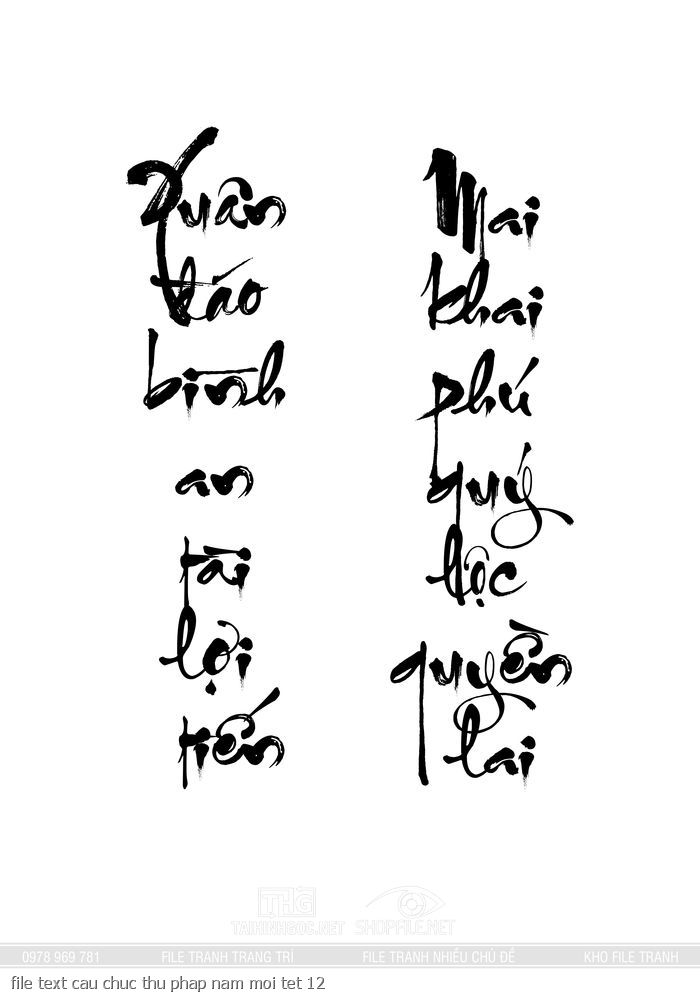 Xuân
káo
bình
an
tài
lợi
tiến
Mai
khai
phú
quý
lộc
quyền
lai
THG
TAIHINHGOC.NET SHOPFILE.NET
0978 969 781 FILE TRANH TRANG TRÍ FILE TRANH NHIỀU CHỦ ĐỀ KHO FILE TRANH
file text cau chuc thu phap nam moi tet 12